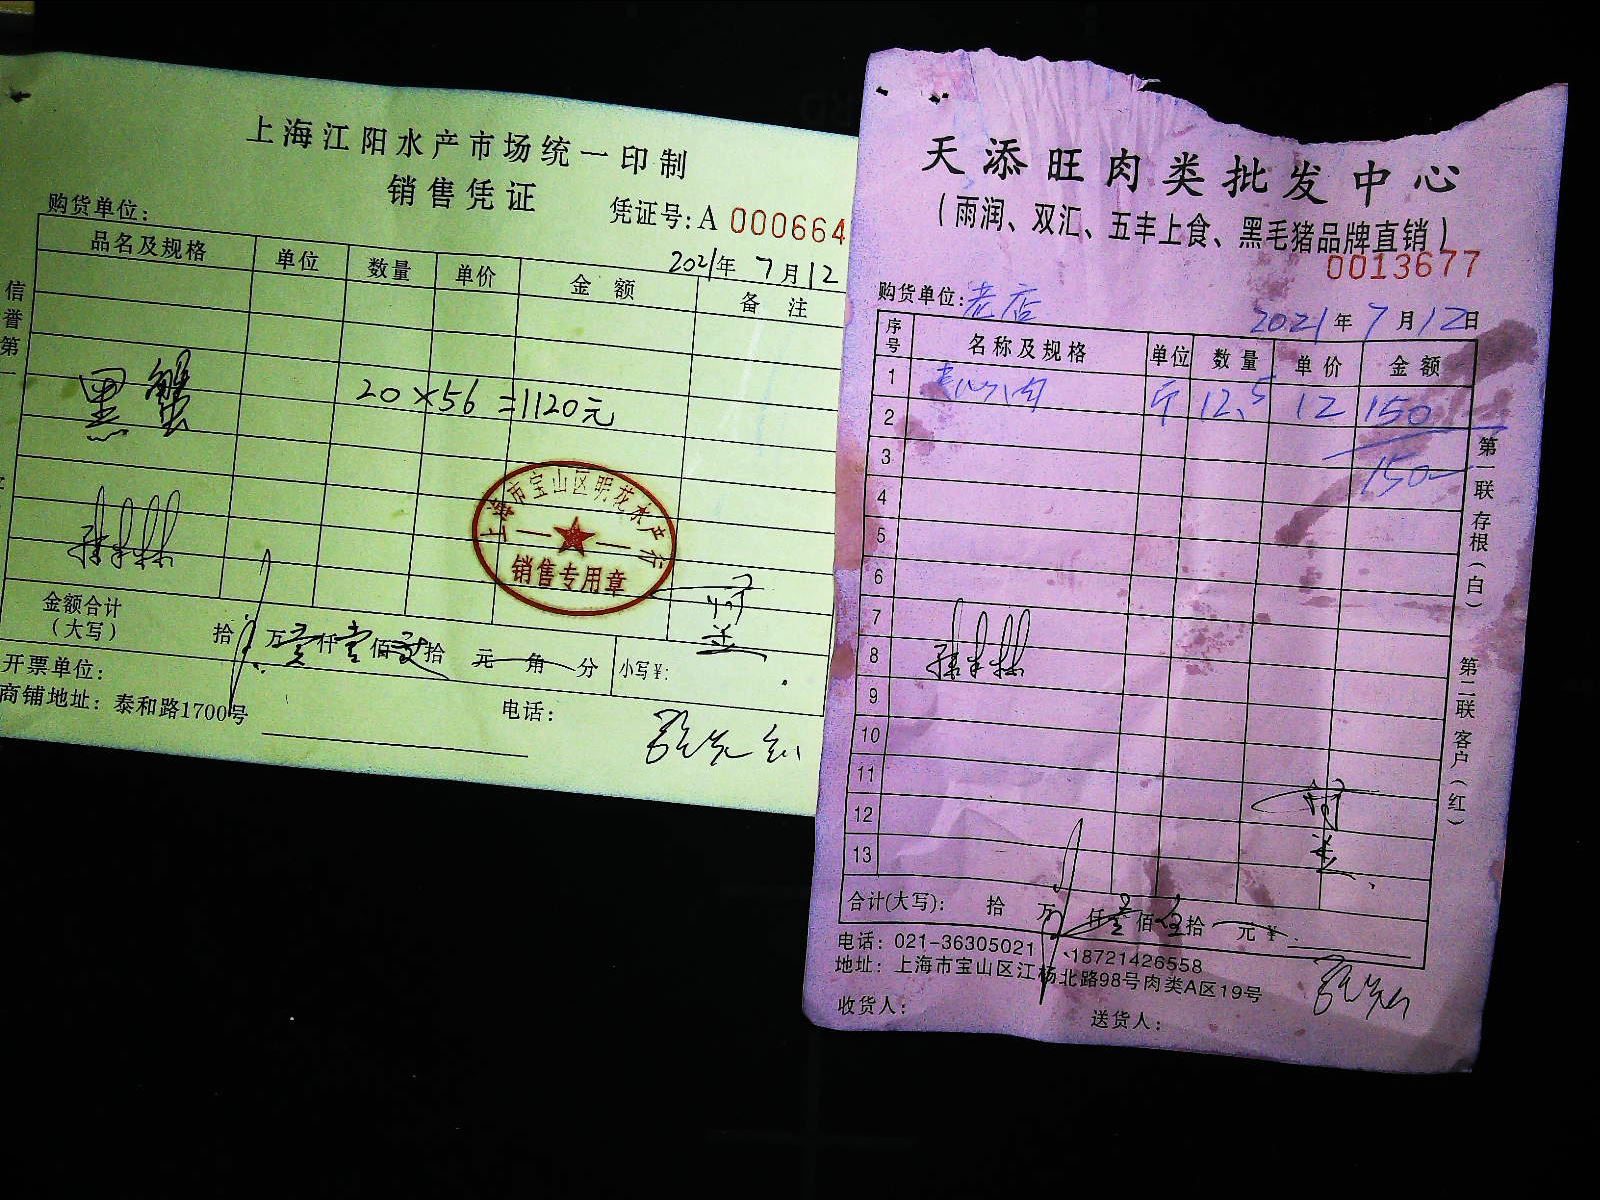 上海江阳水产市场统一印制
销售凭证
购货单位:
凭证号: A 000664
2021年 7月12
品名及规格 单位 数量 单价 金 额 备 注
信誉第一
黑蟹 20×56=1120元
上海市宝山区明花水产行
销售专用章
金额合计
(大写)
拾 万壹仟壹佰贰拾 元 角 分 小写¥:
开票单位:
商铺地址: 泰和路1700号 电话:
天添旺肉类批发中心
(雨润、双汇、五丰上食、黑毛猪品牌直销)
0013677
购货单位: 老店
2021年 7月12日
序号 名称及规格 单位 数量 单价 金额
1 夹心肉 斤 12.5 12 150
2
3 150
4
5
6
7
8
9
10
11
12
13
合计(大写): 拾 万 仟壹佰伍拾 元 ¥.
电话: 021-36305021、18721426558
地址: 上海市宝山区江杨北路98号肉类A区19号
收货人: 送货人:
第一联 存根(白)
第二联 客户(红)